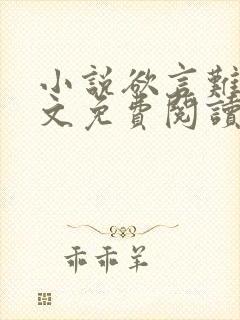 小説欲言難
文免費閱讀
乖乖羊